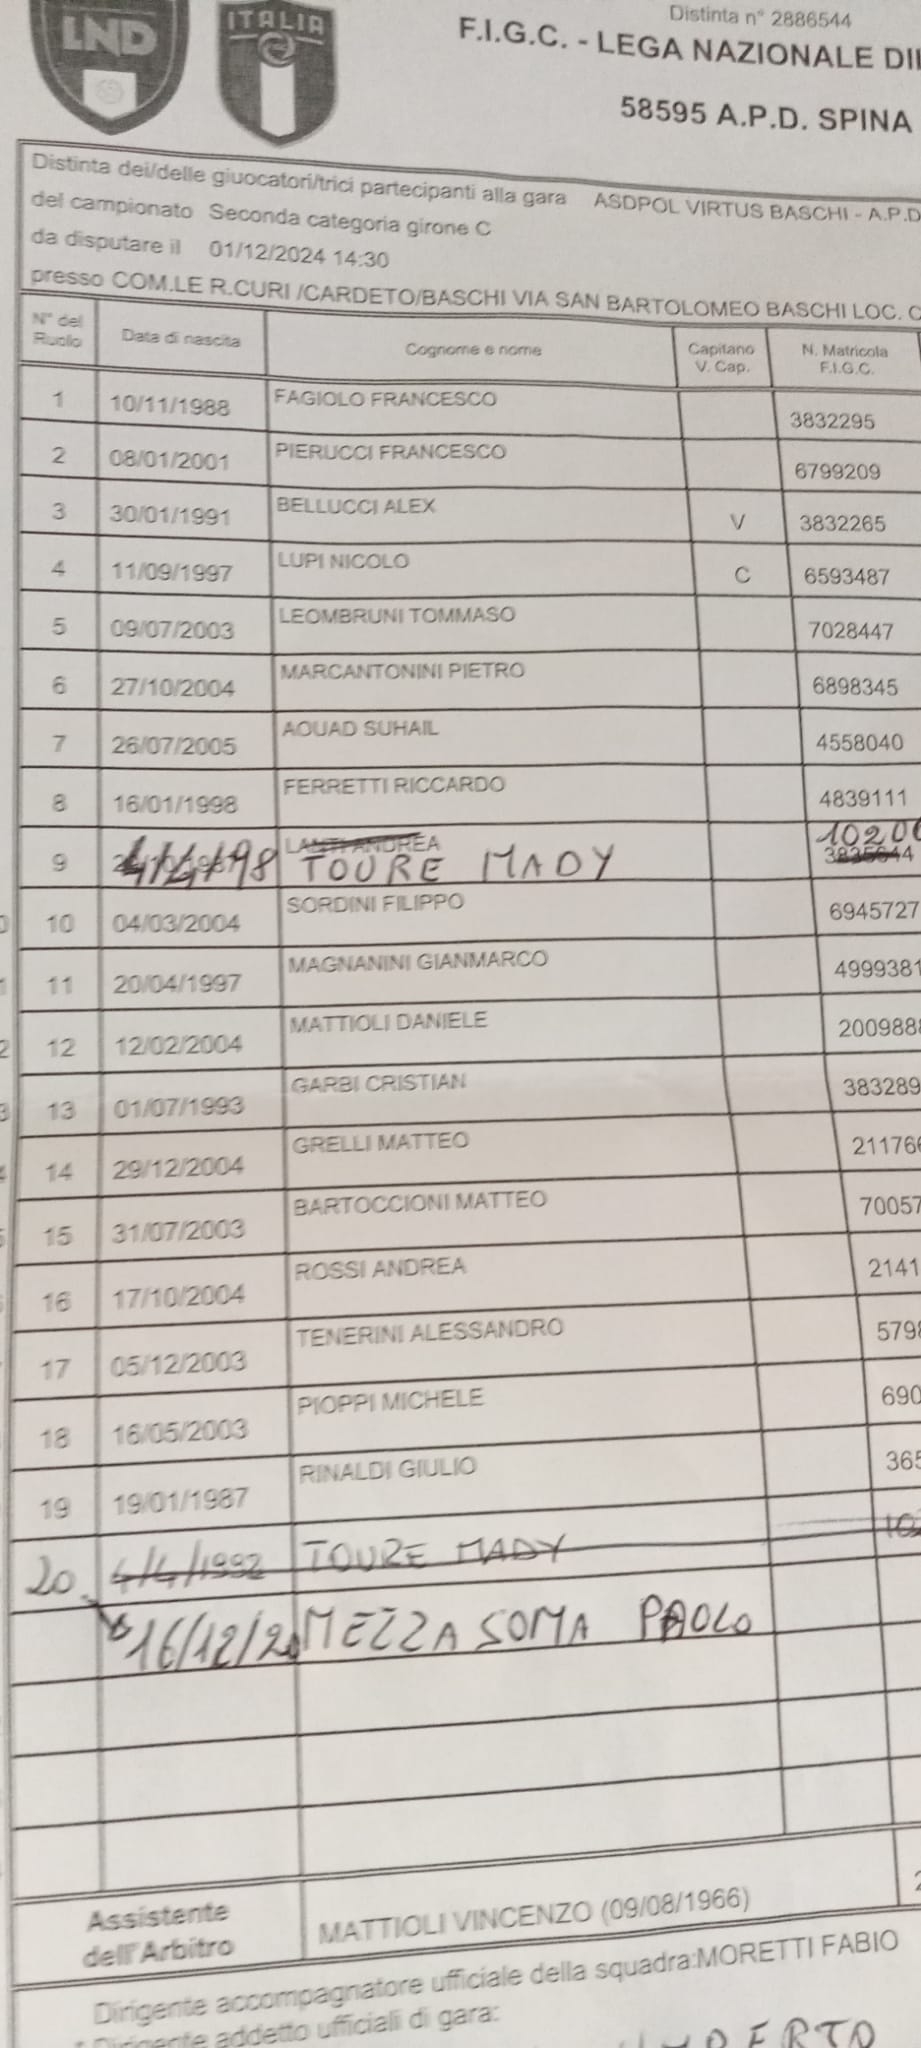 LND
ITALIA
Distinta n° 2886544
F.I.G.C. - LEGA NAZIONALE DIL
58595 A.P.D. SPINA
Distinta dei/delle giuocatori/trici partecipanti alla gara ASDPOL VIRTUS BASCHI - A.P.D
del campionato Seconda categoria girone C
da disputare il 01/12/2024 14:30
presso COM.LE R.CURI /CARDETO/BASCHI VIA SAN BARTOLOMEO BASCHI LOC. C
N° del Ruolo Data di nascita Cognome e nome Capitano V. Cap. N. Matricola F.I.G.C.
1 10/11/1988 FAGIOLO FRANCESCO 3832295
2 08/01/2001 PIERUCCI FRANCESCO 6799209
3 30/01/1991 BELLUCCI ALEX V 3832265
4 11/09/1997 LUPI NICOLO C 6593487
5 09/07/2003 LEOMBRUNI TOMMASO 7028447
6 27/10/2004 MARCANTONINI PIETRO 6898345
7 26/07/2005 AOUAD SUHAIL 4558040
8 16/01/1998 FERRETTI RICCARDO 4839111
LANTI ANDREA
9 4/4/98 TOURE MADY 1020
10 04/03/2004 SORDINI FILIPPO 6945727
11 20/04/1997 MAGNANINI GIANMARCO 4999381
12 12/02/2004 MATTIOLI DANIELE 200988
13 01/07/1993 GARBI CRISTIAN 383289
14 29/12/2004 GRELLI MATTEO 211766
15 31/07/2003 BARTOCCIONI MATTEO 70057
16 17/10/2004 ROSSI ANDREA 2141
17 05/12/2003 TENERINI ALESSANDRO 5798
18 16/05/2003 PIOPPI MICHELE 690
19 19/01/1987 RINALDI GIULIO 365
20 4/4/1992 TOURE MADY 10
16/12/20 MEZZASOMA PAOLO
Assistente dell'Arbitro MATTIOLI VINCENZO (09/08/1966)
Dirigente accompagnatore ufficiale della squadra:MORETTI FABIO
* Dirigente addetto ufficiali di gara: